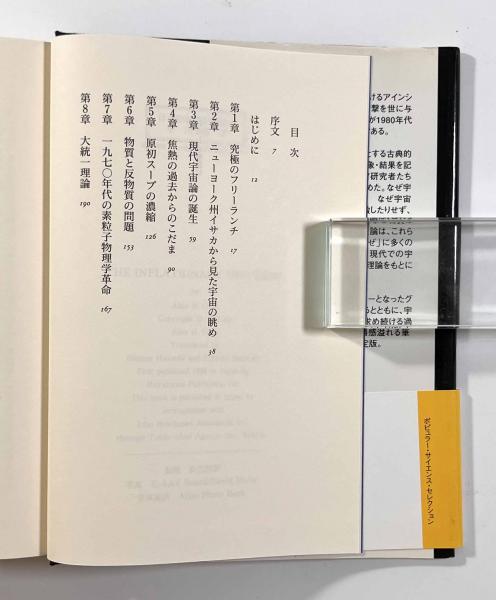 目次
序文 7
はじめに 12
第1章 究極のフリーランチ 17
第2章 ニューヨーク州イサカから見た宇宙の眺め 38
第3章 現代宇宙論の誕生 59
第4章 焦熱の過去からのこだま 90
第5章 原初スープの濃縮 126
第6章 物質と反物質の問題 153
第7章 一九七〇年代の素粒子物理学革命 167
第8章 大統一理論 190
けるアインシ
撃を世に与
が1980年代
ある。
とする古典的
象・結果を記
研究者たち
めた。なぜ宇
なぜ宇宙
張したりせず、
論は、これら
ぜ」に多くの
現代での宇
理論をもとに
ーとなったグ
るとともに、宇
求め続ける過
感溢れる筆
定版。
ポピュラー・サイエンス・セレクション
THE INFLATIONARY